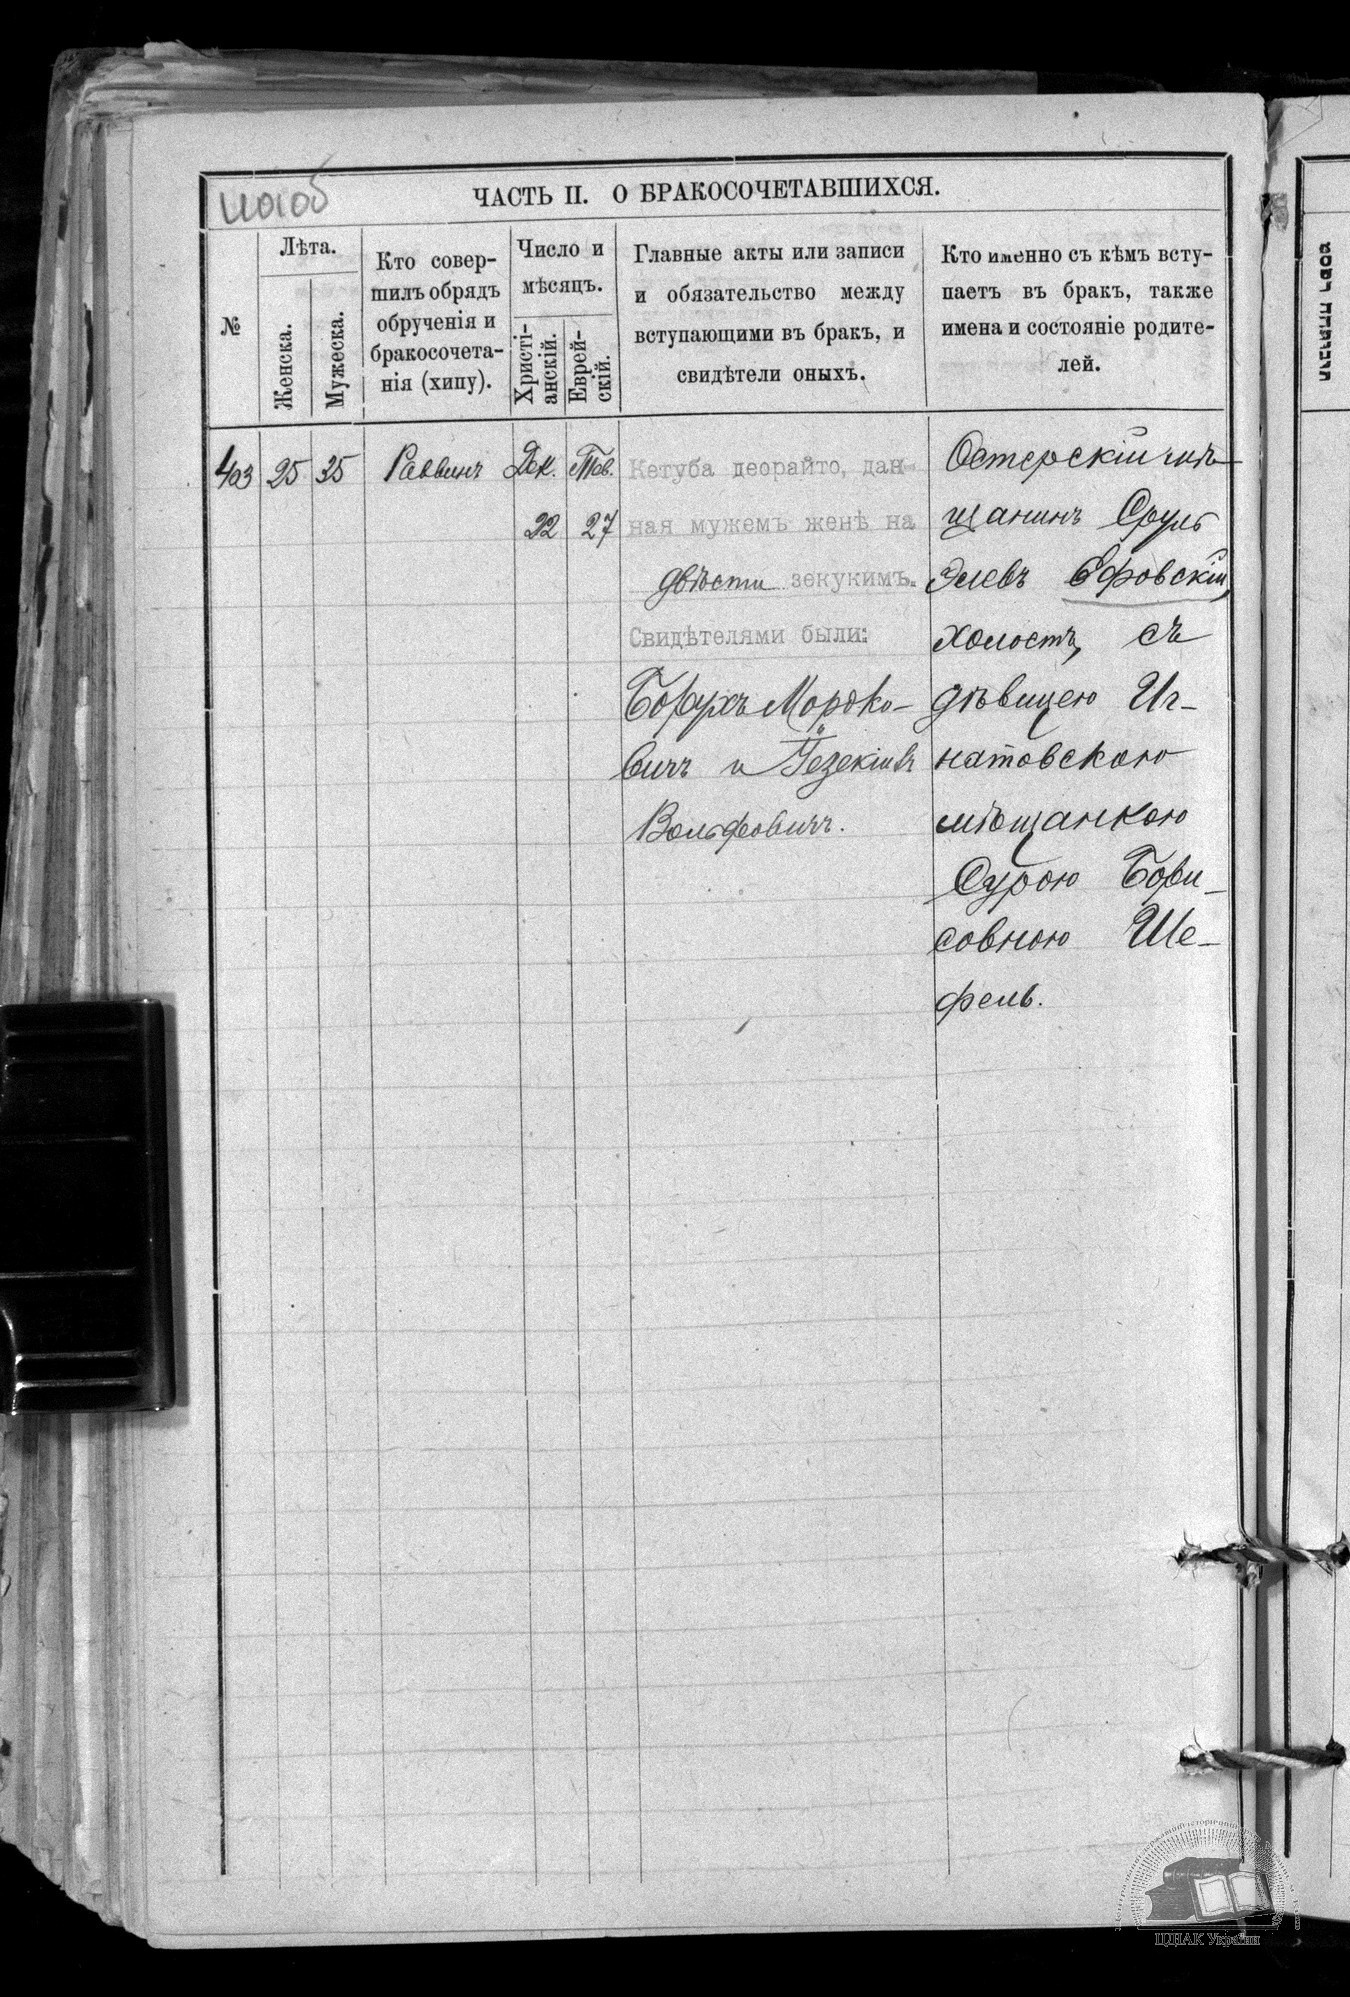 ЧАСТЬ II. О БРАКОСОЧЕТАВШИХСЯ.
№
Лѣта.
Женска.
Мужеска.
Кто совер-
шилъ обрядъ
обрученія и
бракосочета-
нія (хипу).
Число и
мѣсяцъ.
Христі-
анскій.
Еврей-
скій.
Главные акты или записи
и обязательство между
вступающими въ бракъ, и
свидѣтели оныхъ.
Кто именно съ кѣмъ всту-
паетъ въ бракъ, также
имена и состояніе родите-
лей.
403
25
35
Раввинъ
Дек.
22
Тев.
27
Кетуба деорайто, дан-
ная мужемъ женѣ на
двѣсти зекукимъ.
Свидѣтелями были:
Борухъ Мордко-
вичъ и Іезекіиль
Вольфовичъ.
Остерскій мѣ-
щанинъ Сруль
Эліевъ Ефовскій,
холостъ, съ
дѣвицею Иг-
натовскою
мѣщанкою
Сурою Бори-
совною Ше-
фель.
ЦДІАК України